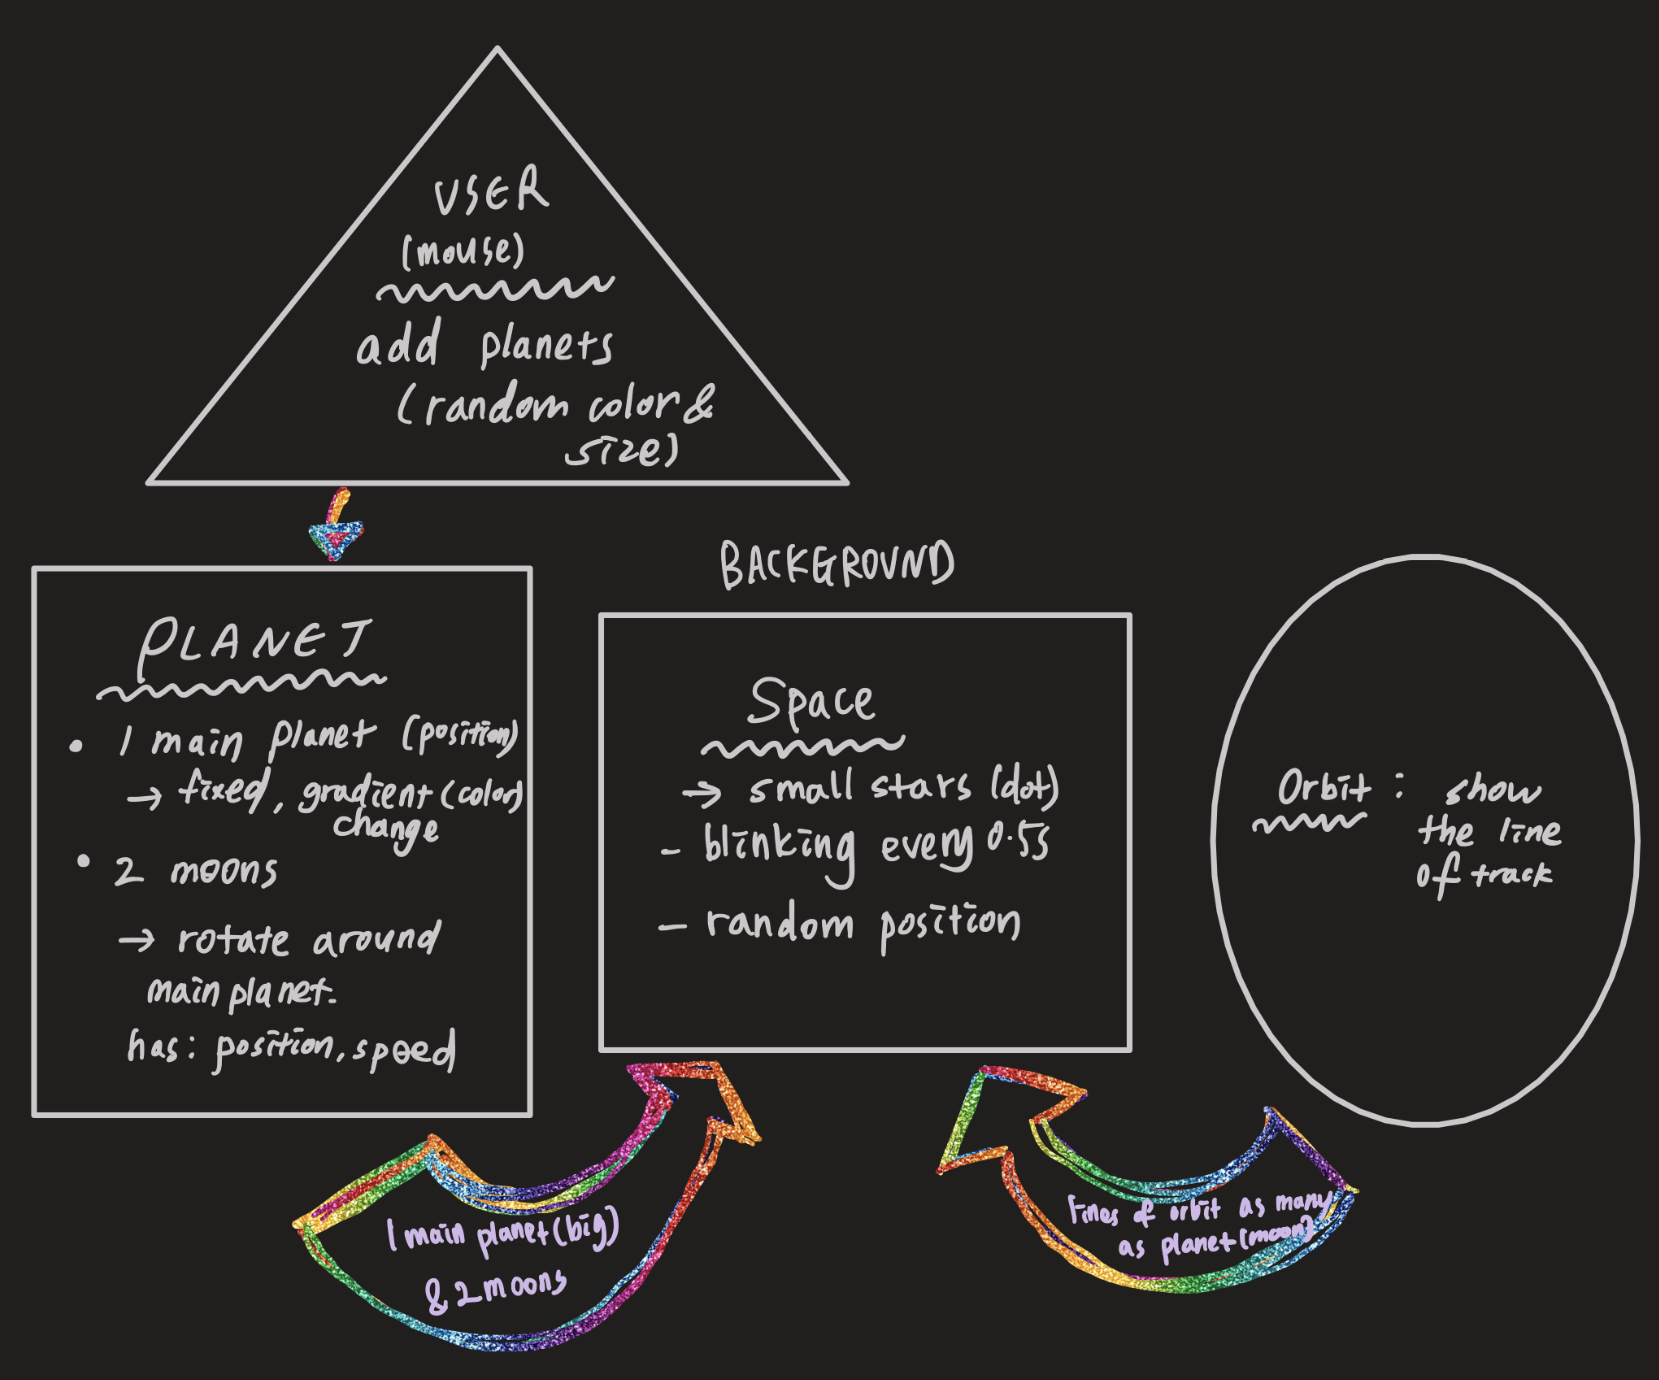 USER
(mouse)
add planets
(random color &
size)
PLANET
• 1 main planet (position)
→ fixed, gradient (color)
change
• 2 moons
→ rotate around
main planet.
has: position, speed
BACKGROUND
Space
→ small stars (dot)
- blinking every 0.5s
- random position
Orbit : show
the line
of track
1 main planet (big)
& 2 moons
of orbit as many
as planet (moon)